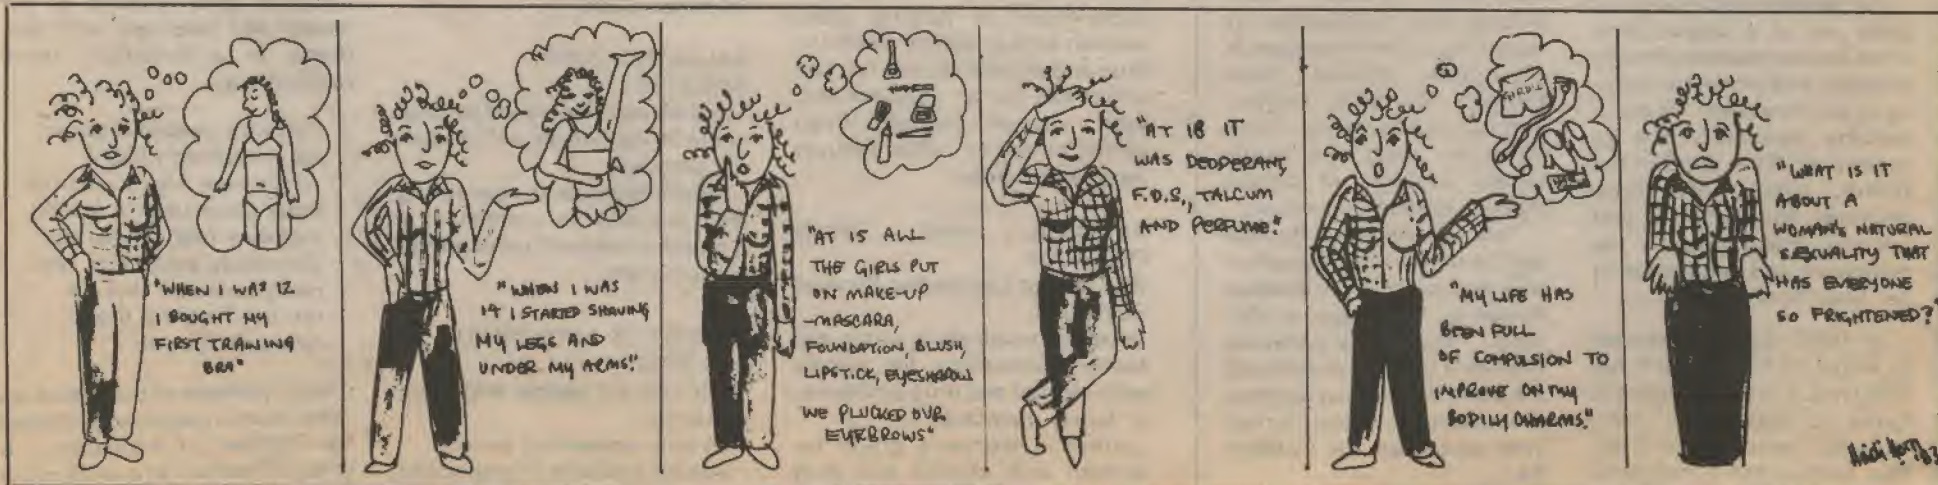 "WHEN I WAS 12
I BOUGHT MY
FIRST TRAINING
BRA"
"WHEN I WAS
14 I STARTED SHAVING
MY LEGS AND
UNDER MY ARMS."
"AT 15 ALL
THE GIRLS PUT
ON MAKE-UP
-MASCARA,
FOUNDATION, BLUSH,
LIPSTICK, EYESHADOW
WE PLUCKED OUR
EYEBROWS"
"AT 18 IT
WAS DEODERANT,
F.D.S., TALCUM
AND PERFUME."
GIRDLE
"MY LIFE HAS
BEEN FULL
OF COMPULSION TO
IMPROVE ON MY
BODILY CHARMS."
"WHAT IS IT
ABOUT A
WOMAN'S NATURAL
SEXUALITY THAT
HAS EVERYONE
SO FRIGHTENED?"